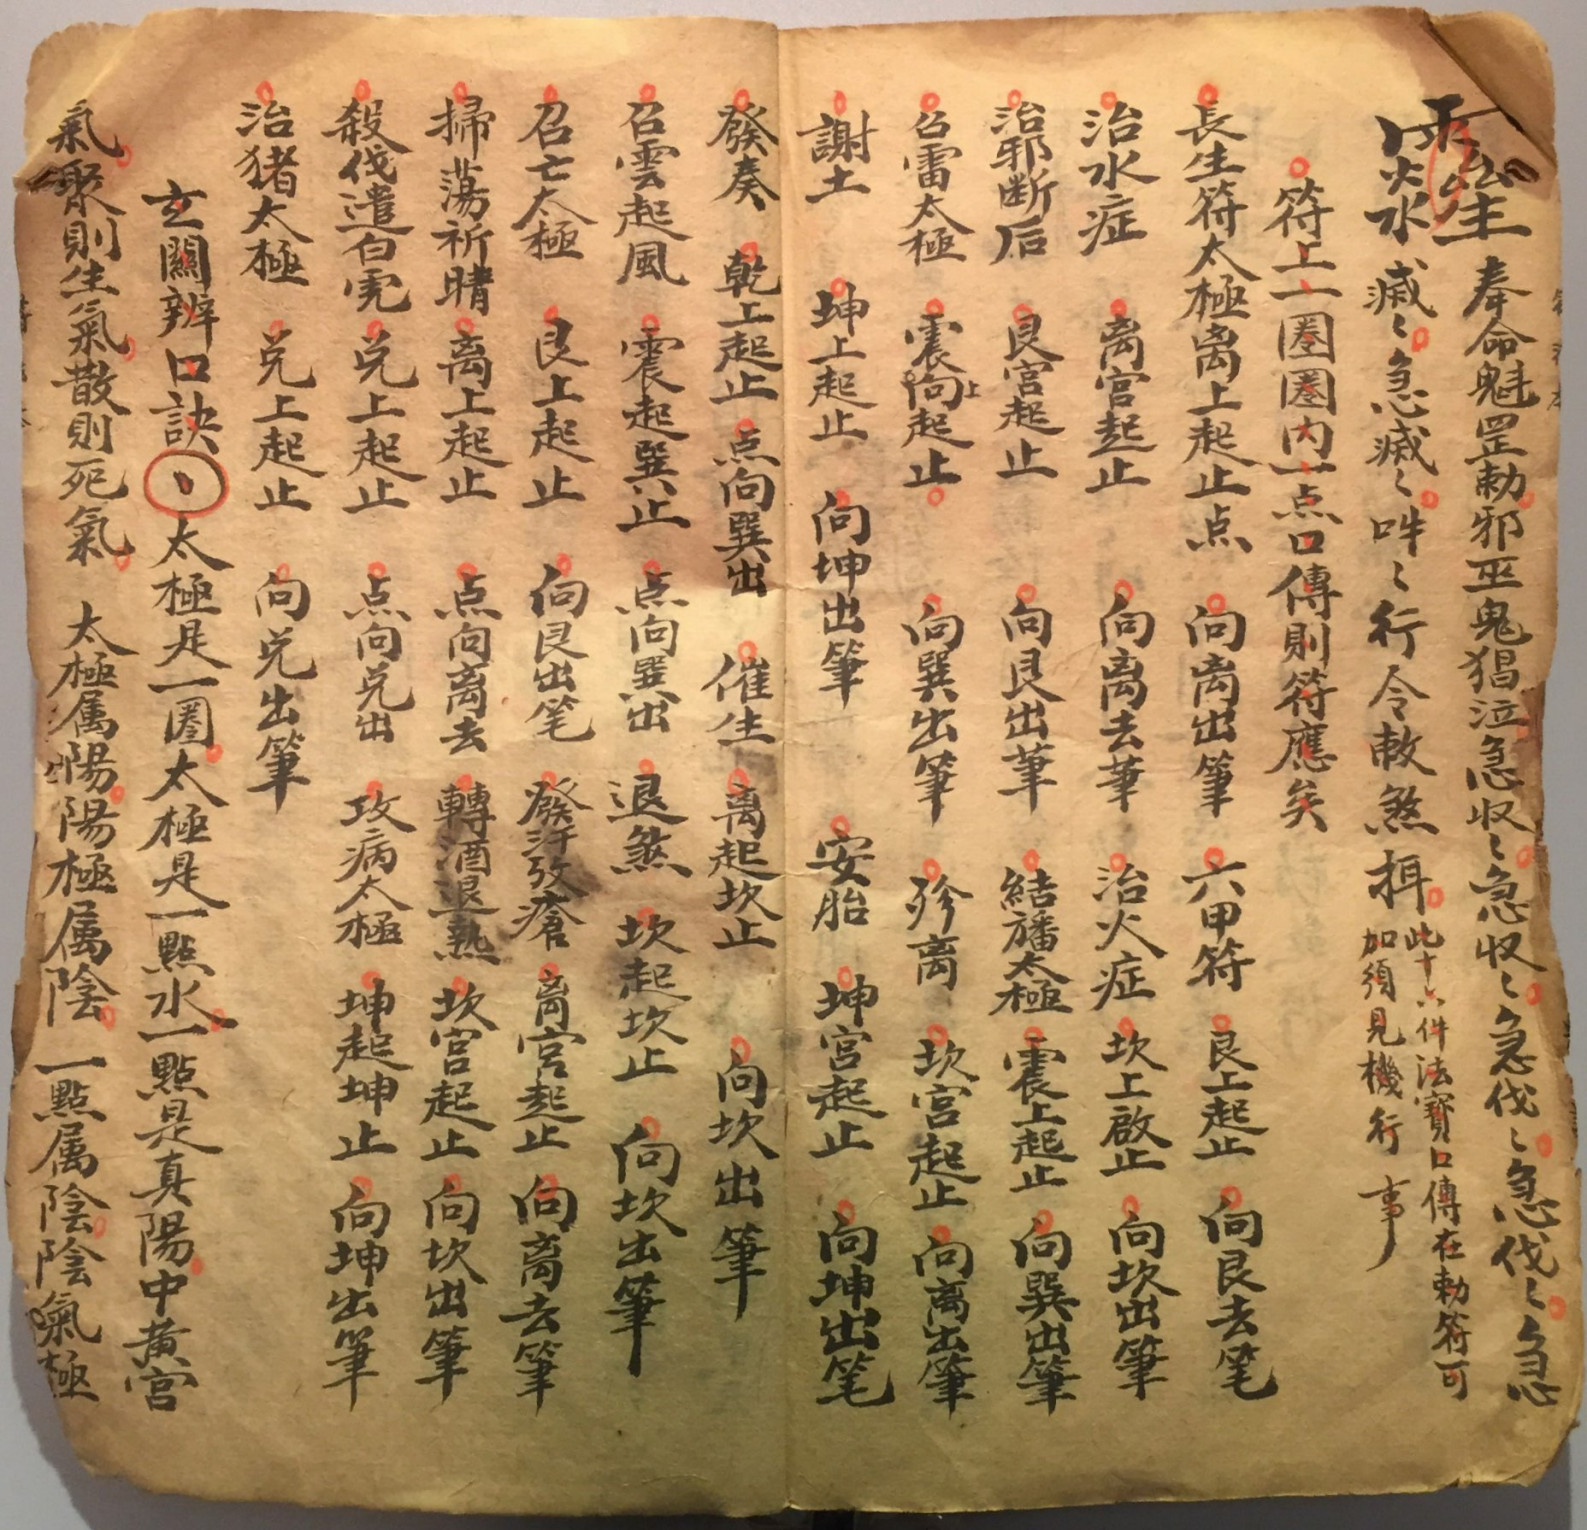 奉命魁罡勅邪巫鬼猖泣急収〻急収〻急伐〻急伐〻急
滅〻急滅〻吽〻行令敕煞揖
此十六件法寶口傳在勅符可
加須見機行事
符上一圈圈内一点口傳則符應矣
長生符太極离上起止点 向离出筆 六甲符 艮上起止 向艮去笔
治水症 离宫起止 向离去筆 治火症 坎上啟止 向坎出筆
治邪断后 艮宫起止 向艮出筆 結旛太極 震上起止 向巽出筆
召雷太極 震上向起止 向巽出筆 殄离 坎宫起止 向离出筆
謝土 坤上起止 向坤出筆 安胎 坤宫起止 向坤出笔
發奏 乾上起止 点向巽出 催生 离起坎止 向坎出筆
召雲起風 震起巽止 点向巽出 退煞 坎起坎止 向坎出筆
召亡太極 艮上起止 向艮出笔 發汗攻瘡 离宫起止 向离去筆
掃蕩祈晴 离上起止 点向离去 轉酒退熱 坎宫起止 向坎出筆
殺伐遣白虎 兑上起止 点向兑出 攻病太極 坤起坤止 向坤出筆
治猪太極 兑上起止 向兑出筆
玄關辨口訣 太極是一圈太極是一點水一點是真陽中黄宫
氣聚則生氣散則死氣 太極属陽陽極属陰 一點属陰陰氣極